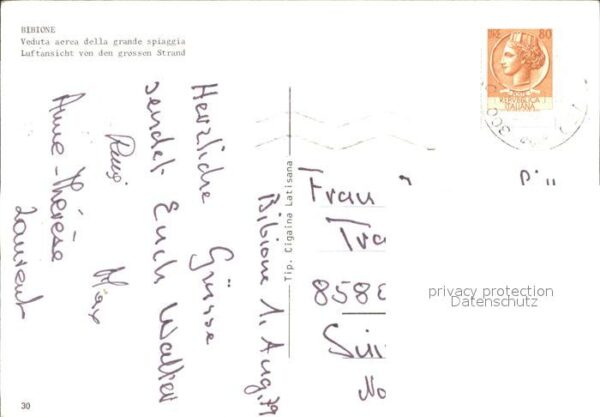 BIBIONE
Veduta aerea della grande spiaggia
Luftansicht von den grossen Strand
LIRE 80
REPVBBLICA
ITALIANA
Tip. Cigaina Latisana
Bibione 1. Aug. 79
Herzliche Grüsse
sendet Euch Walter
Max
Anne-Thérèse
Laurent
Frau
Tra
858
privacy protection
Datenschutz
Sui
No
30